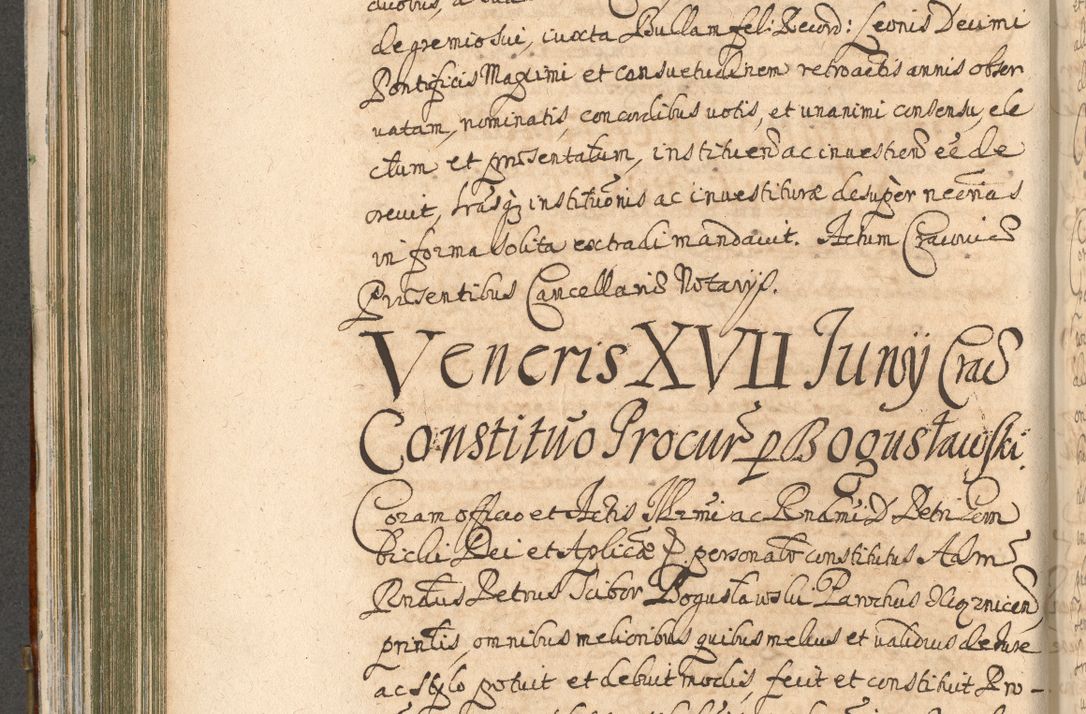 de gremio sui, iuxta Bullam fel: Record: Leonis Decimi
Pontificis Maximi et consuetudinem retroactis annis obser
vatam, nominatis, concordibus votis, et unanimi consensu, ele
ctum et præsentatum, instituend ac investiend eē de
crevit, lrāsq institūonis ac investituræ desuper necrias
in forma solita extradi mandavit. Actum Cracoviæ
Præsentibus Cancellariæ Notarijs.
Veneris XVII Junij Crac
Constitūo Procur p Bogusławski.
Coram officio et Actis Illrmi ac Rndmi D Petri Gem
biclii Dei et Aplicæ personalr constitutus Adm
Rndus Petrus Scibor Bogusławski Parochus
prīntis, omnibus melioribus quibus melius et validius de Jure
ac stylo potuit et debuit modis, fecit et constituit Pro-